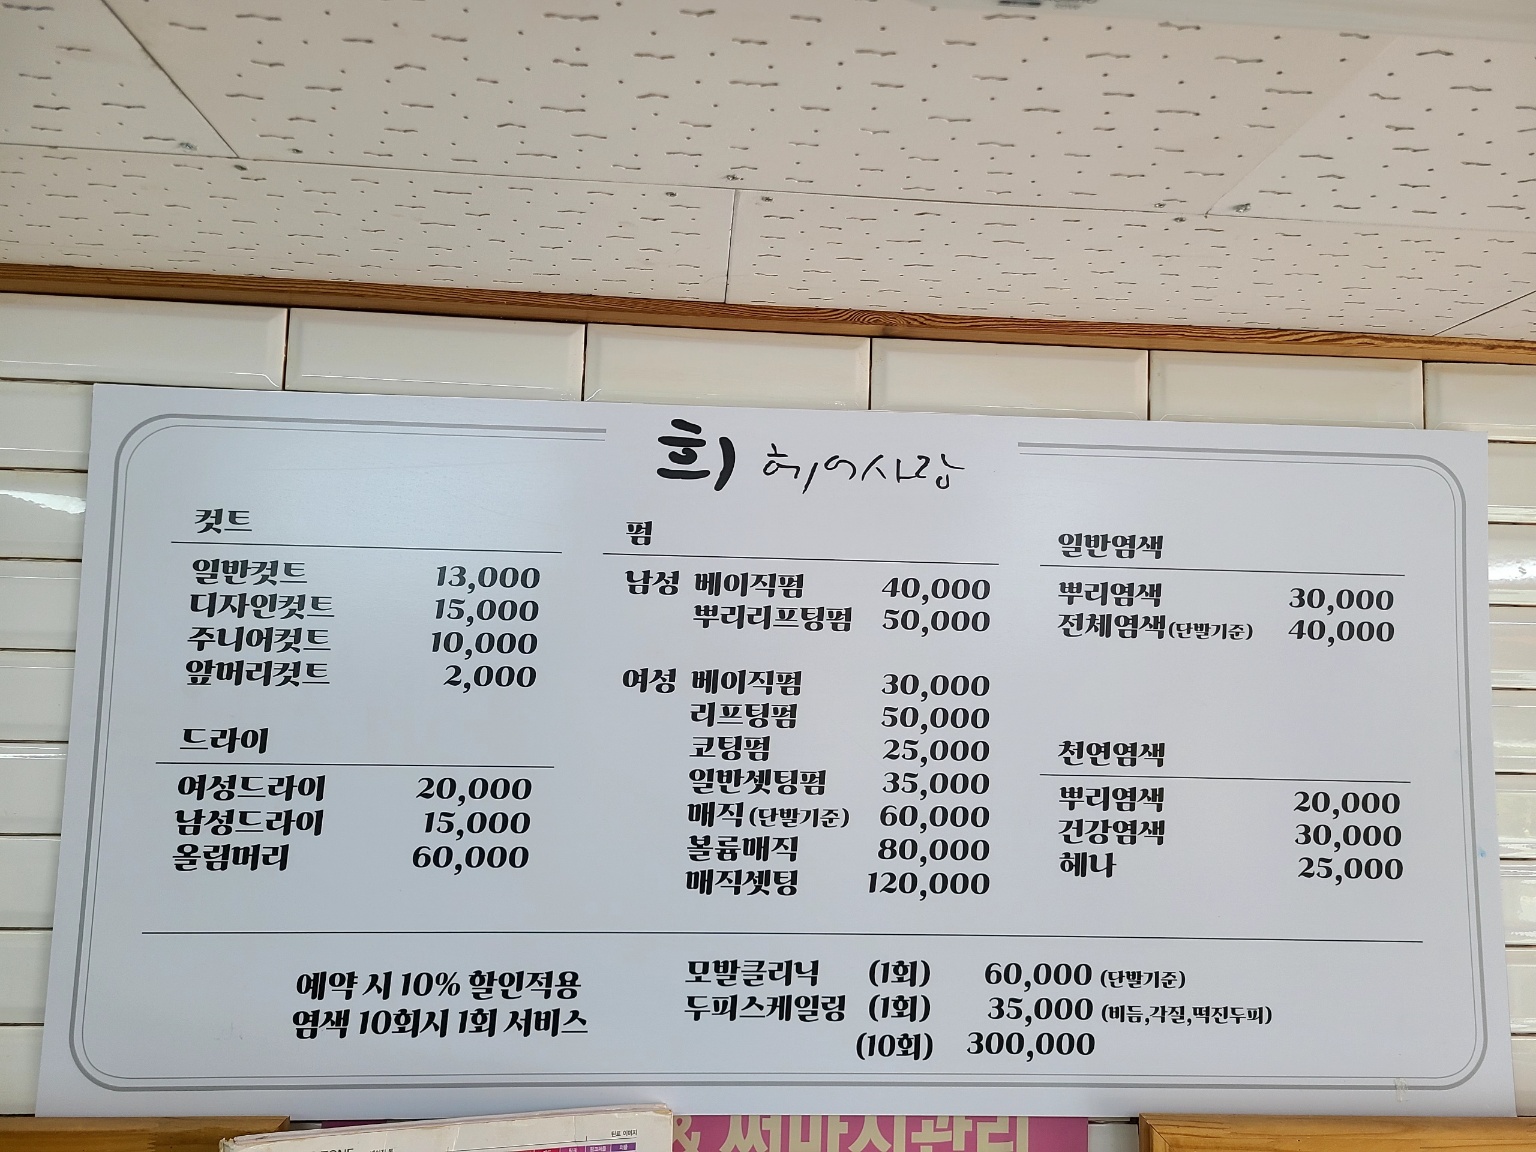 희 헤어사랑
컷트
일반컷트 13,000
디자인컷트 15,000
주니어컷트 10,000
앞머리컷트 2,000
드라이
여성드라이 20,000
남성드라이 15,000
올림머리 60,000
펌
남성 베이직펌 40,000
뿌리리프팅펌 50,000
여성 베이직펌 30,000
리프팅펌 50,000
코팅펌 25,000
일반셋팅펌 35,000
매직(단발기준) 60,000
볼륨매직 80,000
매직셋팅 120,000
일반염색
뿌리염색 30,000
전체염색(단발기준) 40,000
천연염색
뿌리염색 20,000
건강염색 30,000
헤나 25,000
예약 시 10% 할인적용
염색 10회시 1회 서비스
모발클리닉 (1회) 60,000 (단발기준)
두피스케일링 (1회) 35,000 (비듬,각질,떡진두피)
(10회) 300,000
& 써마지관리